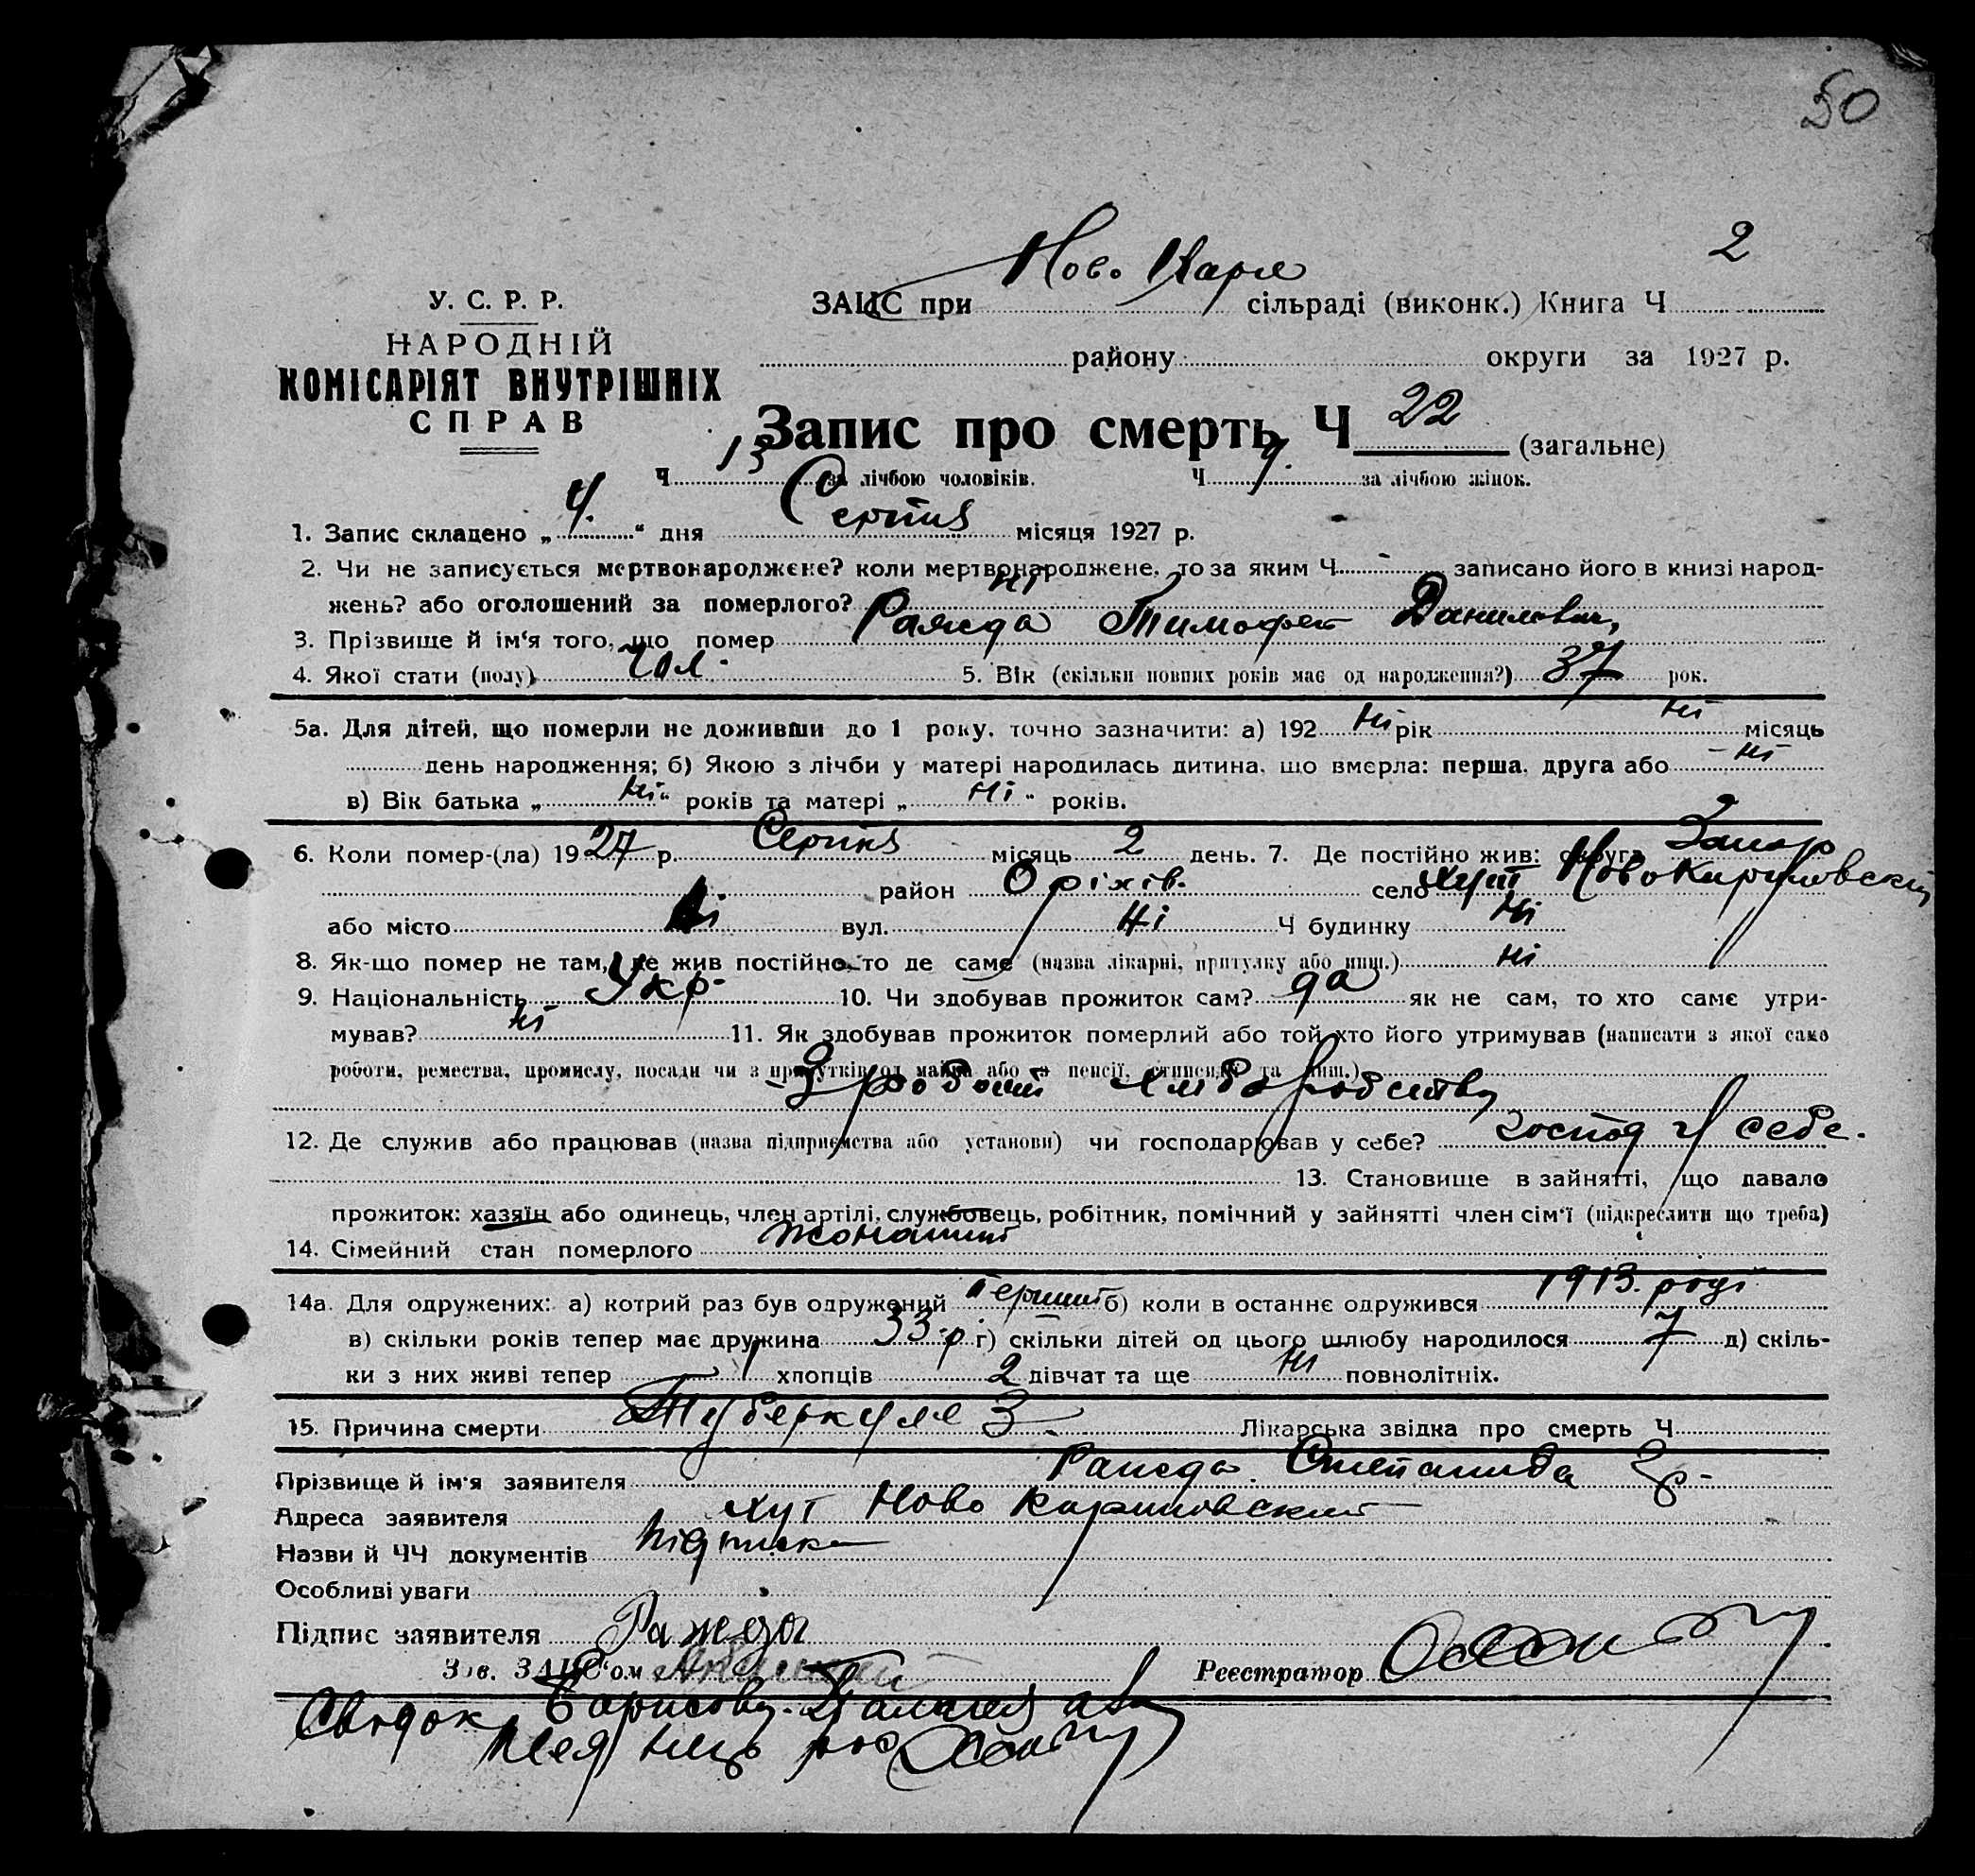 50
Ново Карл 2
У. С. Р. Р. ЗАЦС при сільраді (виконк.) Книга Ч
НАРОДНІЙ району округи за 1927 р.
КОМІСАРІЯТ ВНУТРІШНІХ
СПРАВ
Запис про смерть Ч 22 (загальне)
Ч 13 за лічбою чоловіків. Ч 9. за лічбою жінок.
1. Запис складено „ 4. “ дня Серпня місяця 1927 р.
2. Чи не записується мертвонароджене? коли мертвонароджене, то за яким Ч записано його в книзі народ-
жень? або оголошений за померлого? ні
3. Прізвище й ім‘я того, що помер Ражда Тимофей Данилович
4. Якої стати (полу) Чол. 5. Вік (скільки повних років має од народження?) 37 рок.
5а. Для дітей, що померли не доживши до 1 року, точно зазначити: а) 192 Ні рік Ні місяць
день народження; б) Якою з лічби у матері народилась дитина, що вмерла: перша, друга або Ні
в) Вік батька „ Ні “ років та матері „ Ні “ років.
6. Коли помер-(ла) 19 27 р. Серпня місяць 2 день. 7. Де постійно жив: округа Запор
район Оріхів. село хут Ново Кариловский
або місто Ні вул. Ні Ч будинку Ні
8. Як-що помер не там, де жив постійно, то де саме (назва лікарні, притулку або инш.) Ні
9. Національність Укр. 10. Чи здобував прожиток сам? да як не сам, то хто саме утри-
мував? Ні 11. Як здобував прожиток померлий або той, хто його утримував (написати з якої само
роботи, ремества, промислу, посади чи з прибутків од майна або з пенсії, стипендії та инш.)
З роботи хліборобства
12. Де служив або працював (назва підприємства або установи) чи господарював у себе? Господ у себе.
13. Становище в зайнятті, що давало
прожиток: хазяїн або одинець, член артілі, службовець, робітник, помічний у зайнятті член сім‘ї (підкреслити що треба)
14. Сімейний стан померлого Жонатий
14а. Для одружених: а) котрий раз був одружений Перший б) коли в останнє одружився 1913. році
в) скільки років тепер має дружина 33 р. г) скільки дітей од цього шлюбу народилося 7 д) скіль-
ки з них живі тепер 1 хлопців 2 дівчат та ще Ні повнолітніх.
15. Причина смерти Туберкулез Лікарська звідка про смерть Ч
Прізвище й ім‘я заявителя Ражда Степанида Гр.
Адреса заявителя хут Ново Кариловский
Назви й ЧЧ документів Підписка
Особливі уваги
Підпис заявителя Ражда
Зав. ЗАЦС‘ом Реєстратор
Свідок Борисову